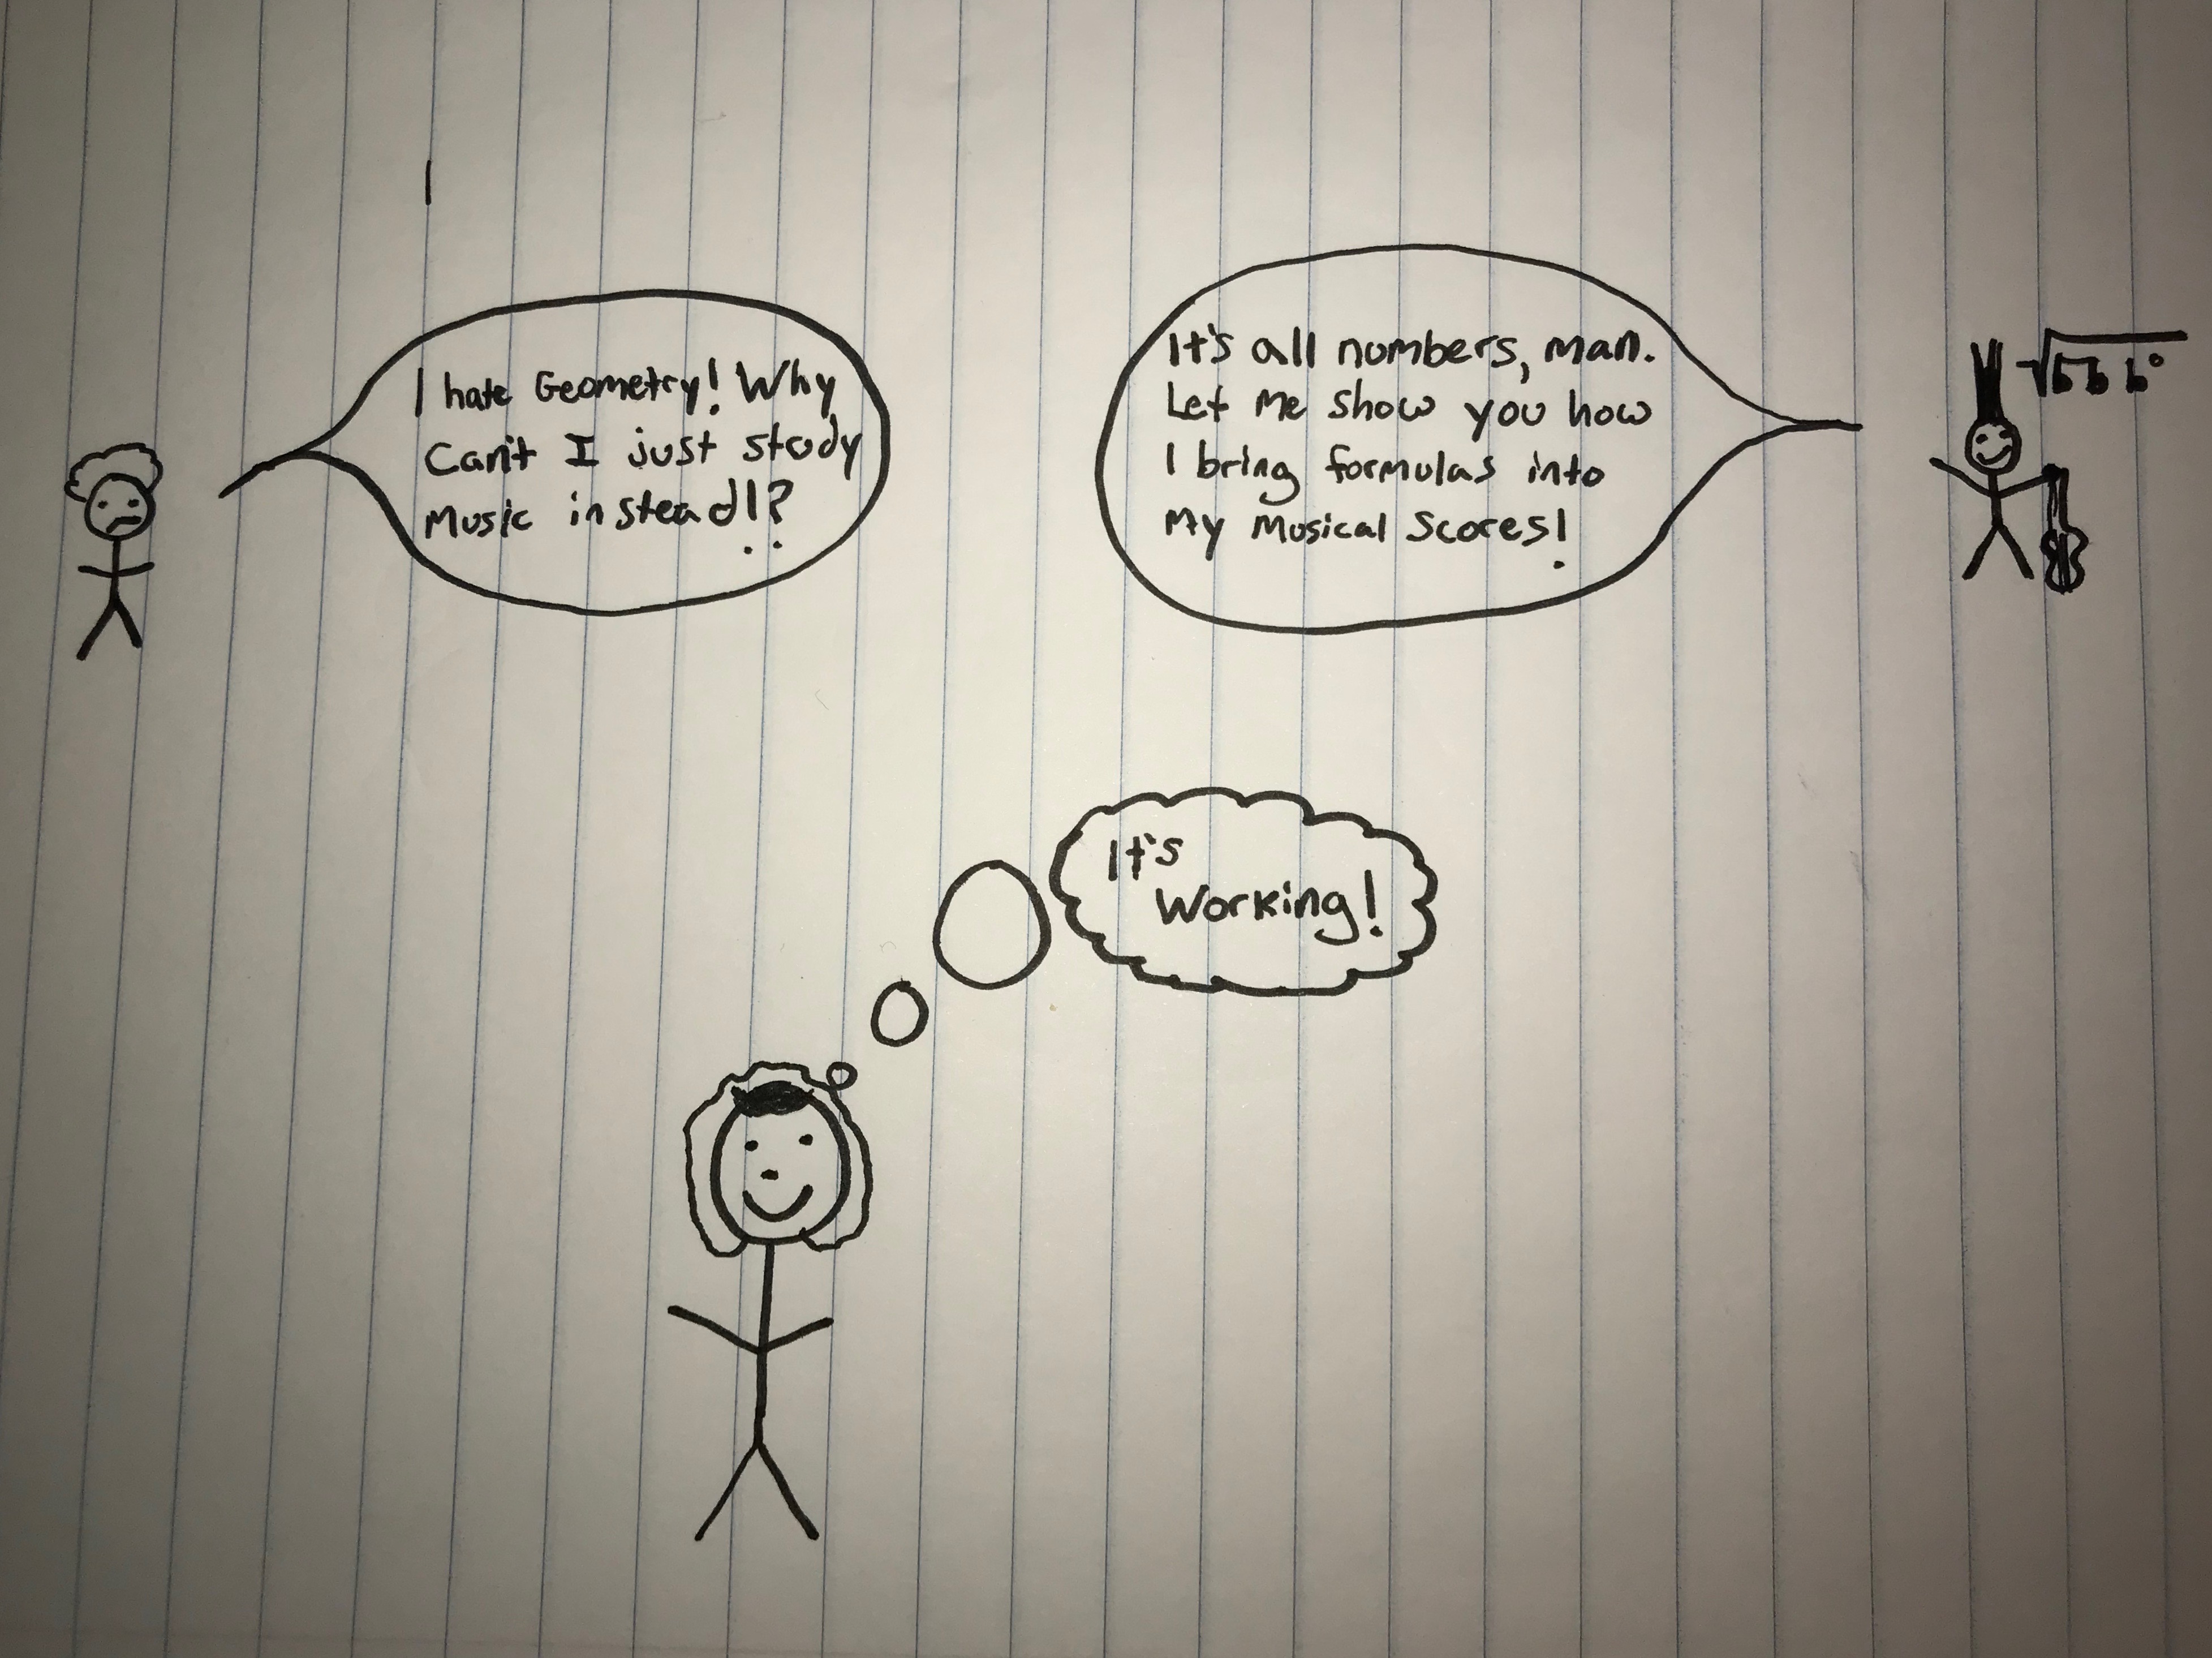 I hate Geometry! Why
Can't I just study
Music instead!?
It's all numbers, man.
Let Me show you how
I bring formulas into
My Musical Scores!
It's
Working!